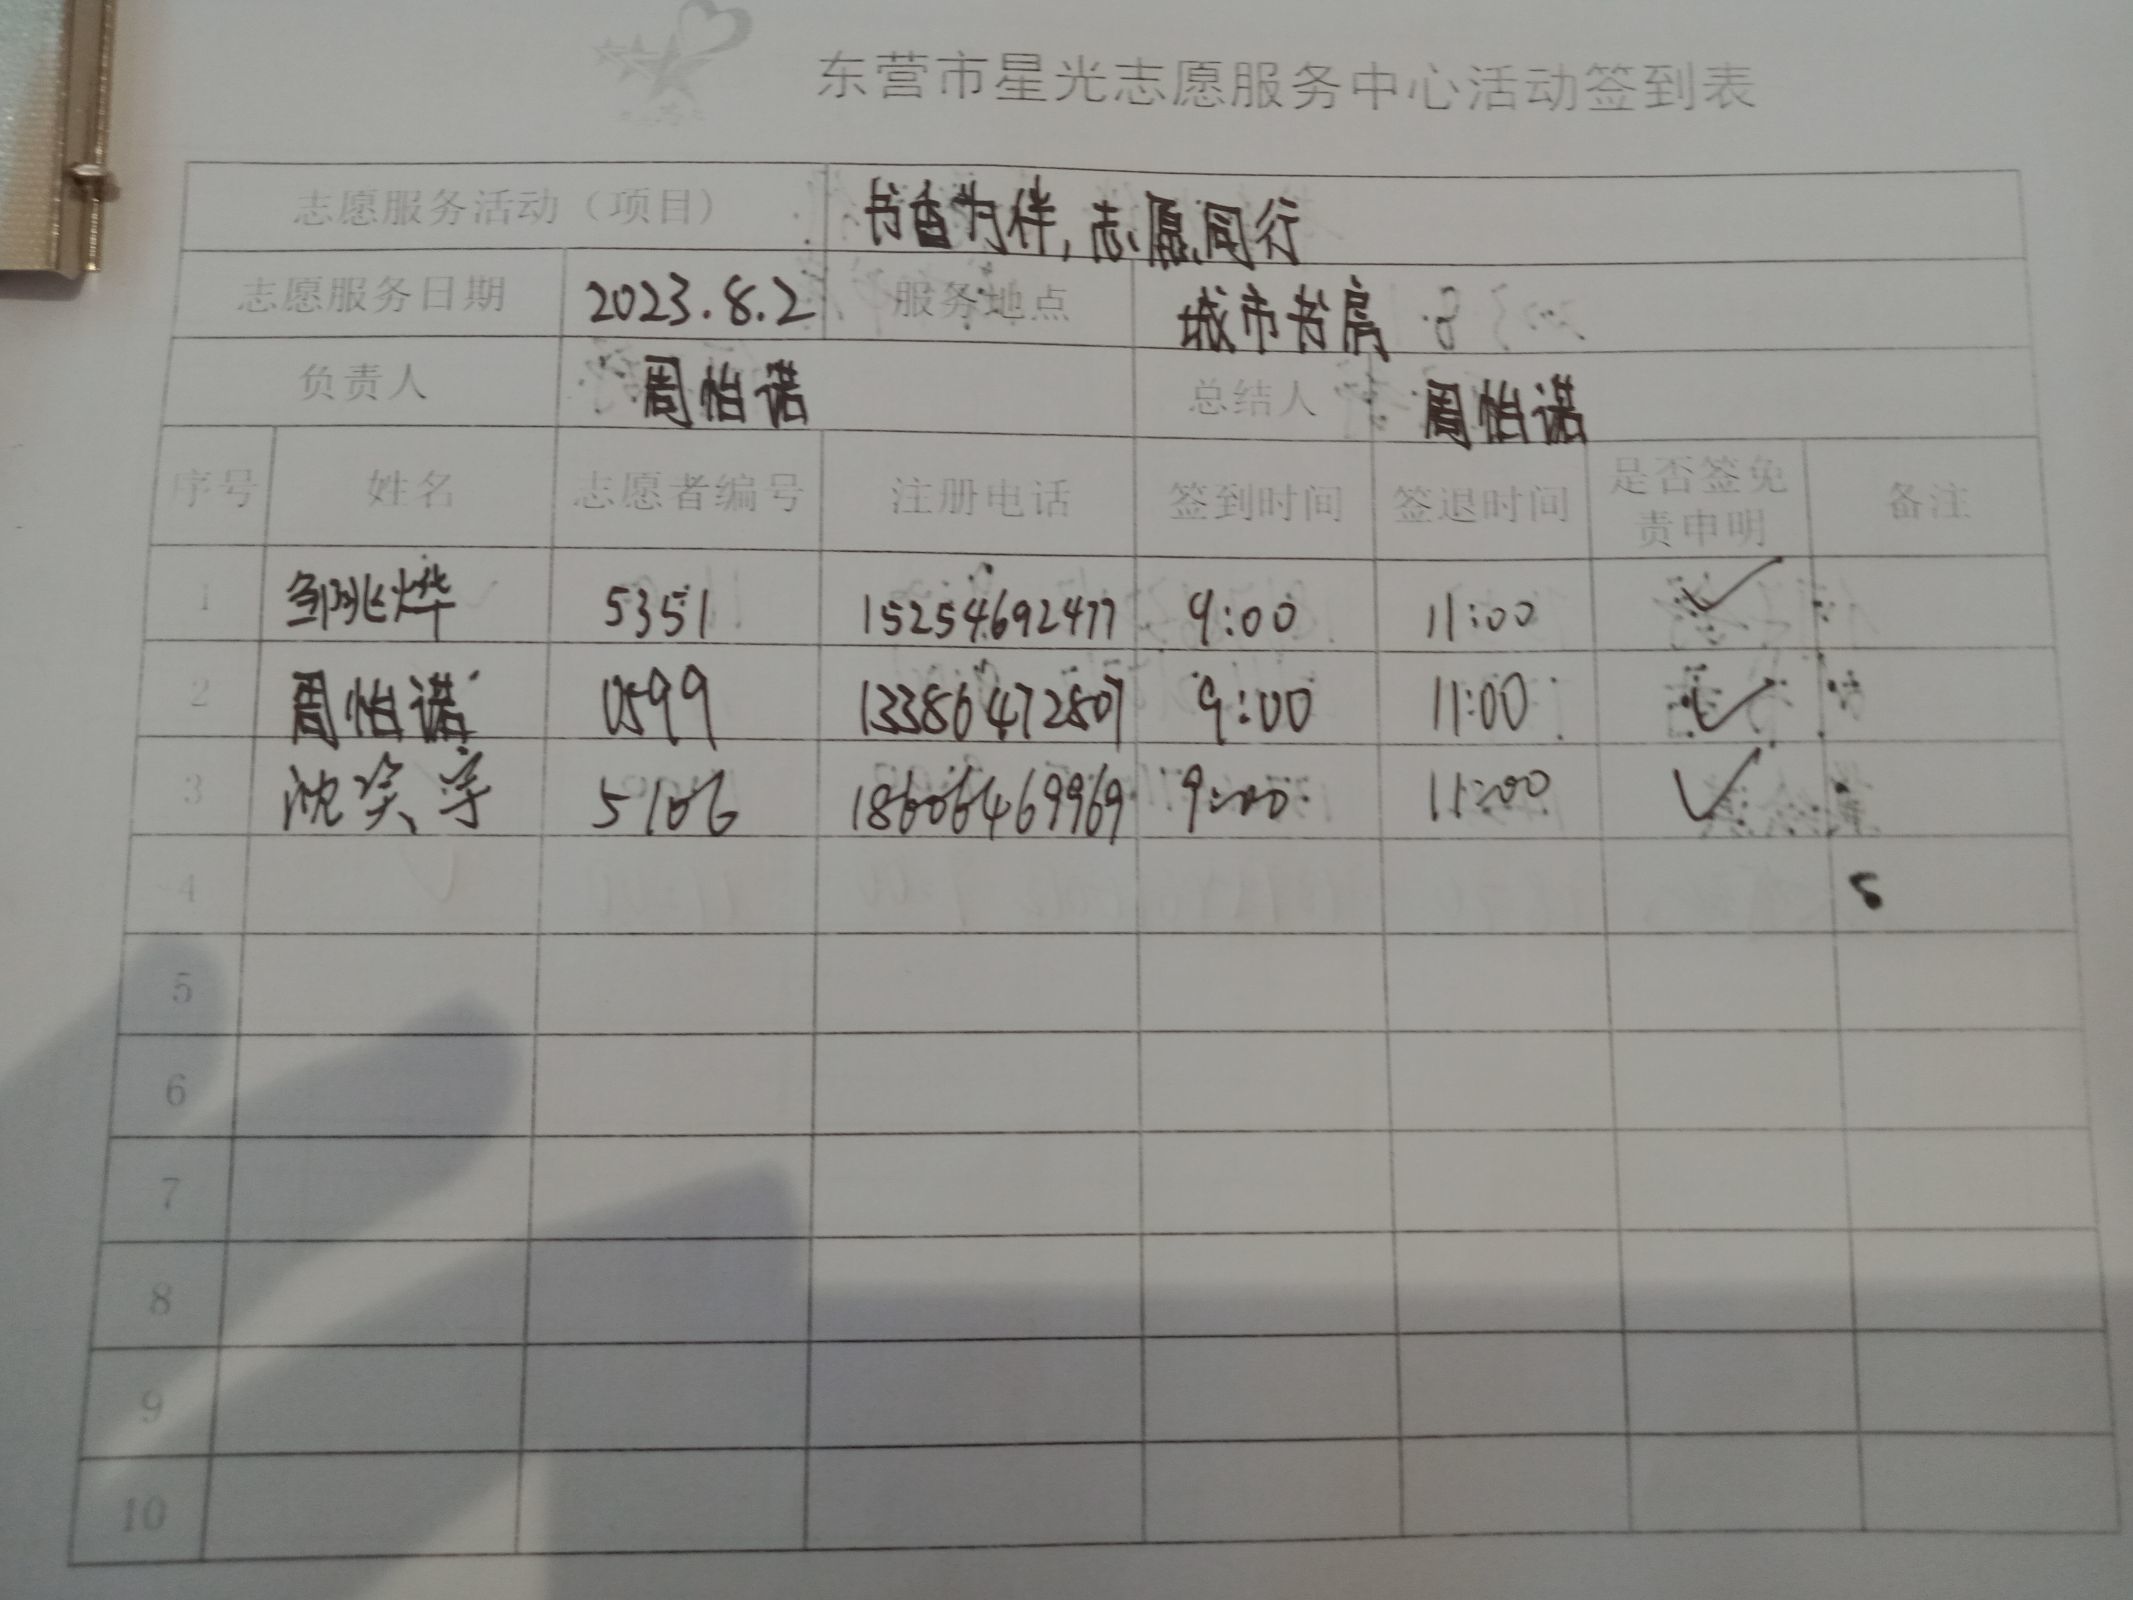 东营市星光志愿服务中心活动签到表
志愿服务活动（项目） 书香为伴,志愿同行
志愿服务日期 2023.8.2 服务地点 城市书房
负责人 周怡诺 总结人 周怡诺
序号 姓名 志愿者编号 注册电话 签到时间 签退时间 是否签免责申明 备注
1 邹兆烨 5351 15254692477 9:00 11:00 ✓
2 周怡诺 0599 13386472807 9:00 11:00 ✓
3 沈奕宇 5106 18606469969 9:00 11:00 ✓
4
5
6
7
8
9
10